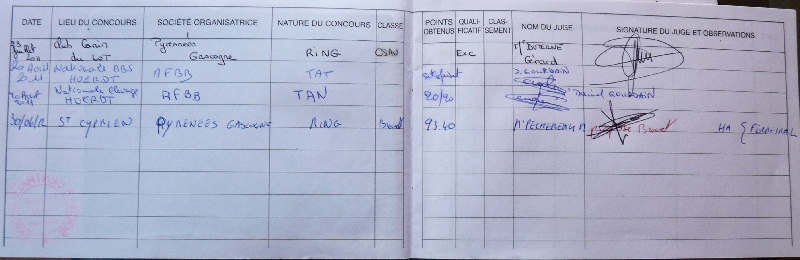 DATE LIEU DU CONCOURS SOCIÉTÉ ORGANISATRICE NATURE DU CONCOURS CLASSE POINTS OBTENUS QUALI-FICATIF CLAS-SEMENT NOM DU JUGE SIGNATURE DU JUGE ET OBSERVATIONS
Club Canin du LOT Pyrennees Gascogne RING CSAU Exc Mr DUTERNE Gérard
20 Août 2011 Nationale BBS HOERDT AFBB TAT satisfaisant D. GOURDAIN
Nationale Elevage HOERDT AFBB TAN 20/20 Daniel GOURDAIN
30/06/12 ST CYPRIEN PYRENEES GASCOGNE RING Brevet 93.40 Mr PECHEREAU Brevet HA